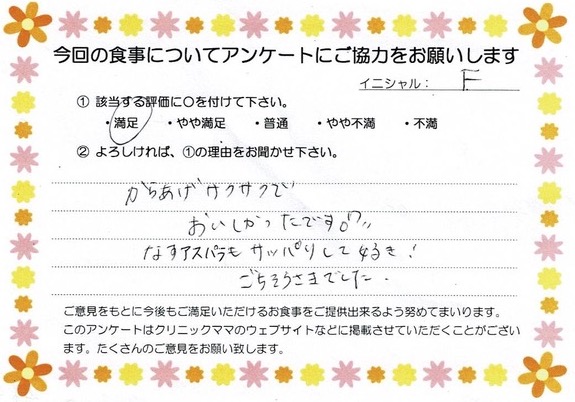 今回の食事についてアンケートにご協力をお願いします
イニシャル： F
① 該当する評価に〇を付けて下さい。
・満足 ・やや満足 ・普通 ・やや不満 ・不満
② よろしければ、①の理由をお聞かせ下さい。
からあげサクサクで
おいしかったです
なすアスパラも サッパリして
ごちそうさまでした.
ご意見をもとに今後もご満足いただけるお食事をご提供出来るよう努めてまいります。
このアンケートはクリニックママのウェブサイトなどに掲載させていただくことがござい
ます。たくさんのご意見をお願い致します。